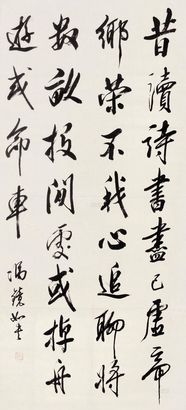 昔讀詩書盡已虛帝
鄉榮不我心追聊將
數畝投閒處或棹舟
遊或命車